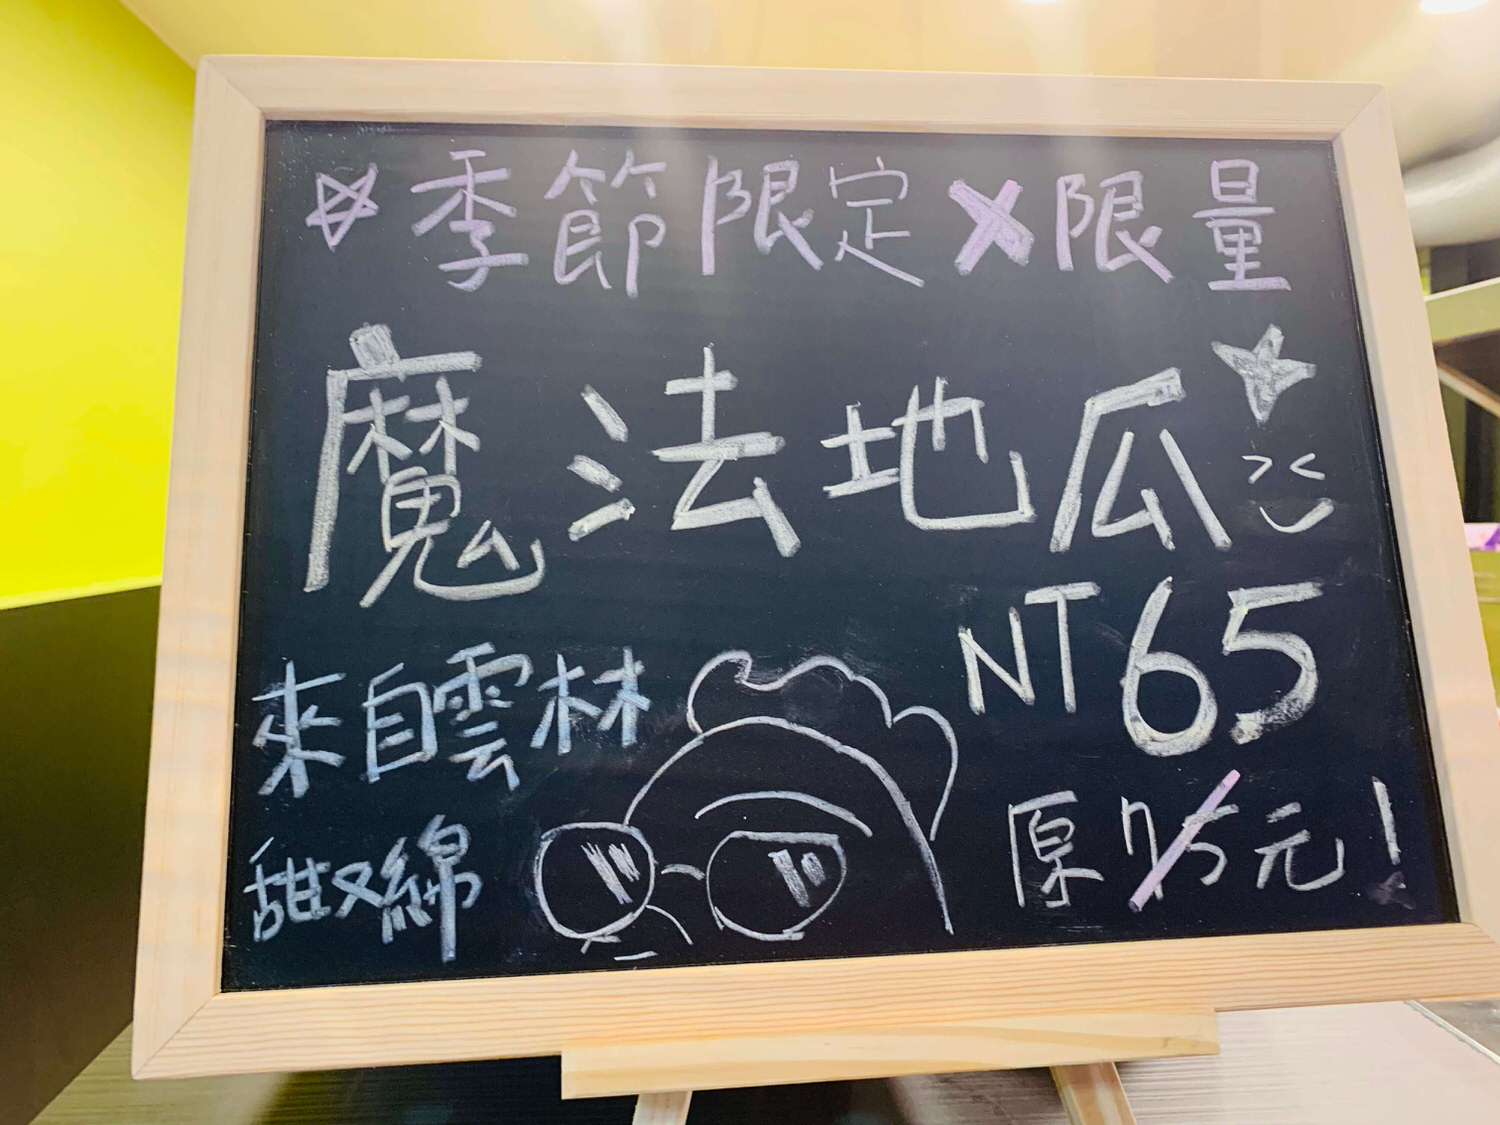 季節限定X限量
魔法地瓜
NT65
來自雲林
甜又綿
原75元!